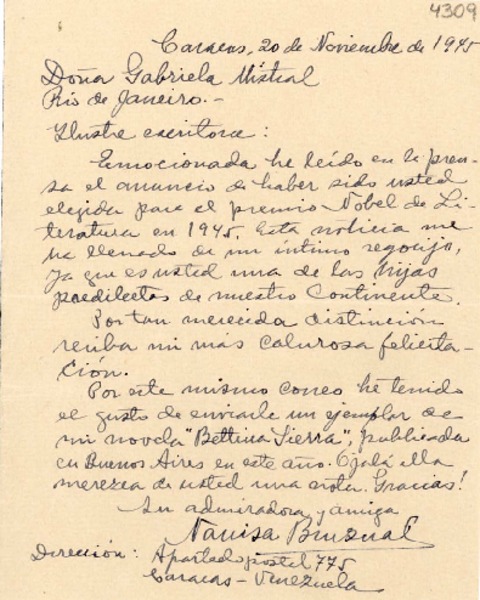 4309
Caracas, 20 de Noviembre de 1945
Doña Gabriela Mistral
Rio de Janeiro.-
Ilustre escritora:
Emocionada he leído en la pren-
sa el anuncio de haber sido usted
elegida para el premio Nobel de Li-
teratura en 1945. Esta noticia me
ha llenado de un íntimo regocijo,
ya que es usted una de las hijas
predilectas de nuestro Continente.
Por tan merecida distinción
reciba mi más calurosa felicita-
ción.
Por este mismo correo he tenido
el gusto de enviarle un ejemplar de
mi novela "Bettina Sierra", publicada
en Buenos Aires en este año. Ojalá ella
merezca de usted una nota. Gracias!
Su admiradora y amiga
Narcisa Bruzual
Dirección: Apartado postal 775
Caracas - Venezuela